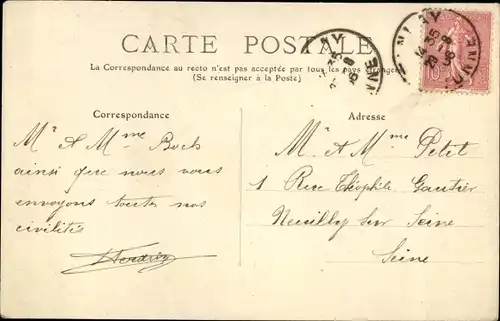 CARTE POSTALE
La Correspondance au recto n'est pas acceptée par tous les pays étrangers
(Se renseigner à la Poste)
Correspondance
Mr & Mme Boch
ainsi que nous vous
envoyons toutes nos
civilités
Adresse
M. & Mme Petit
1 Rue Théophile Gautier
Neuilly sur Seine
Seine